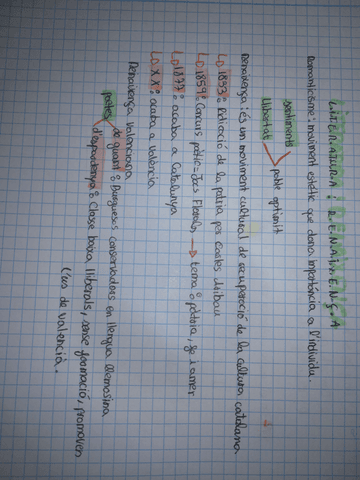 LITERATURA: RENAIXENÇA
Romanticisme: moviment estètic que dona importància a l'individu.
sentiments
llibertat
poble oprimit
Renaixença: és un moviment cultural de recuperació de la cultura catalana
1893: Publicació de la pàtria per Carles Aribau
1859: Concurs poètic = Jocs Florals → tema = pàtria, fe i amor
1877: acaba a Catalunya
XX: acaba a València
Renaixença Valenciana
poetes
de guant: Burguesos conservadors en llengua llemosina
d'espardenya: Classe baixa lliberals, sense formació, promoven
l'ús de valencià.